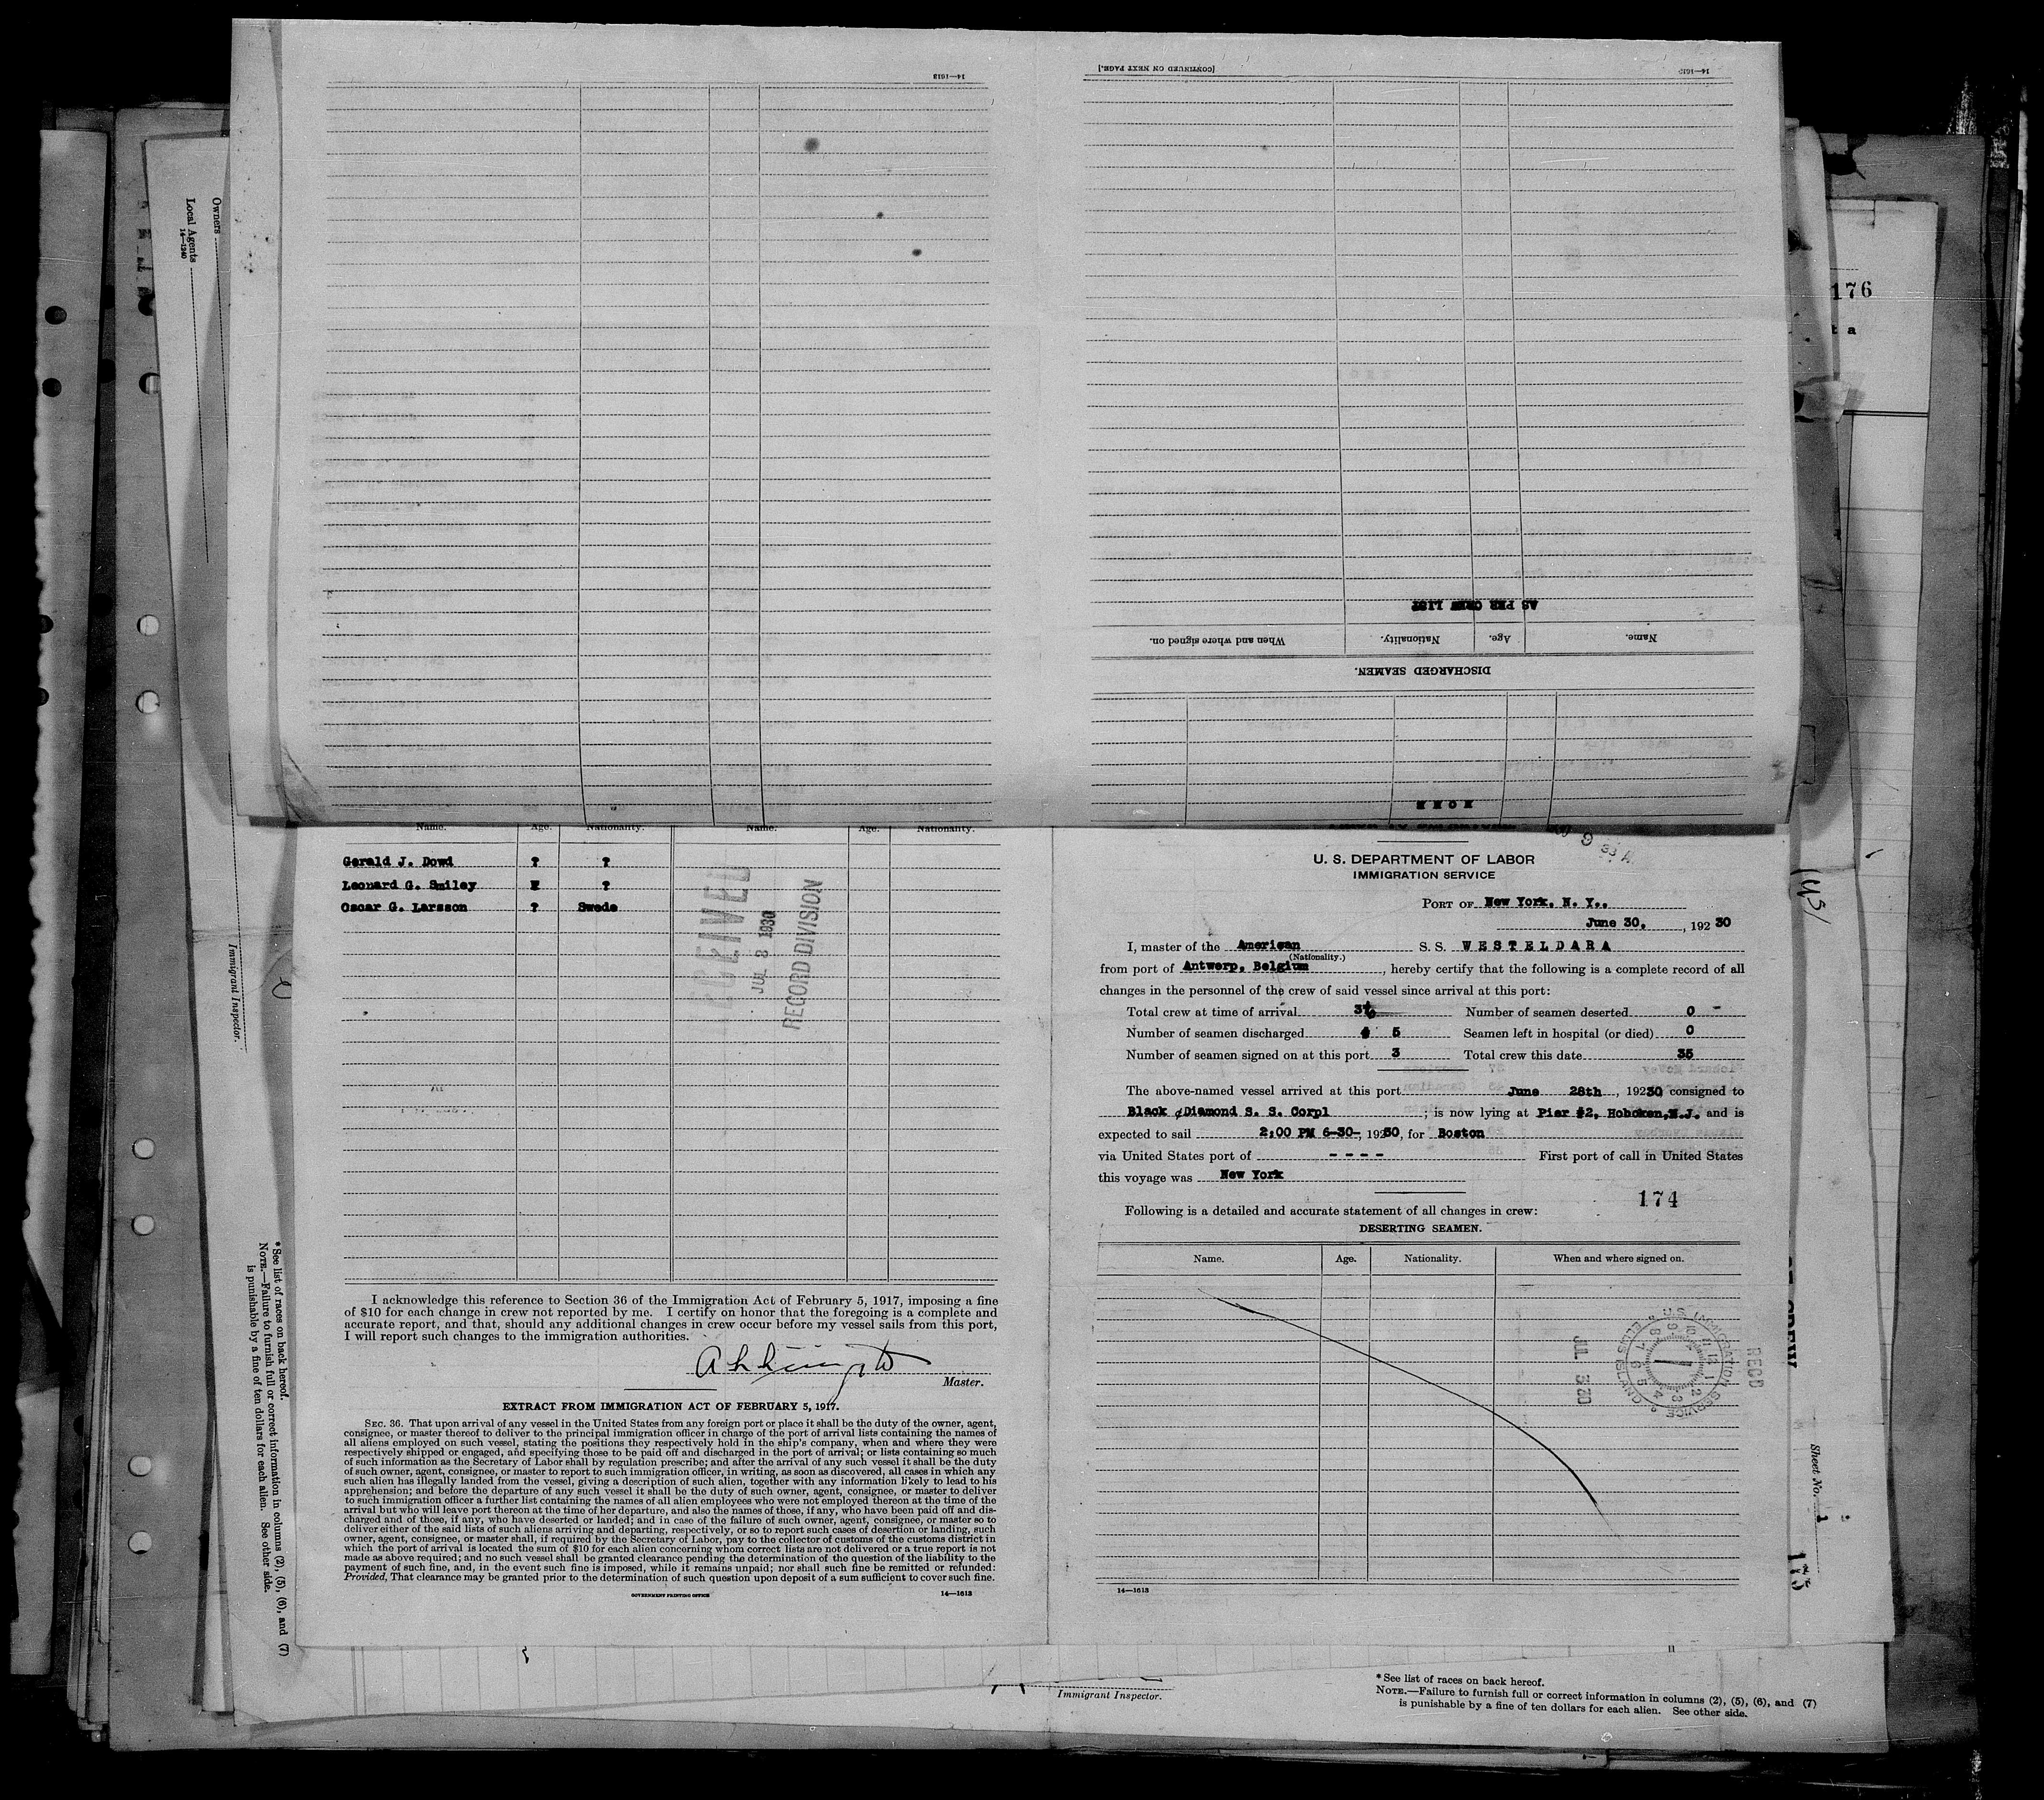 14—1613
[CONTINUED ON NEXT PAGE.]
14—1613
AS PER CREW LIST
Name.
Age.
Nationality.
When and where signed on.
DISCHARGED SEAMEN.
NONE
Owners
Local Agents
14—1240
Immigrant Inspector.
176
t a
Name. Age. Nationality. Name. Age. Nationality.
Gerald J. Dowd ? ?
Leonard G. Smiley ?
Oscar G. Larsson ? Swede
JUL 8 1930
RECORD DIVISION
I acknowledge this reference to Section 36 of the Immigration Act of February 5, 1917, imposing a fine
of $10 for each change in crew not reported by me. I certify on honor that the foregoing is a complete and
accurate report, and that, should any additional changes in crew occur before my vessel sails from this port,
I will report such changes to the immigration authorities.
Master.
EXTRACT FROM IMMIGRATION ACT OF FEBRUARY 5, 1917.
SEC. 36. That upon arrival of any vessel in the United States from any foreign port or place it shall be the duty of the owner, agent,
consignee, or master thereof to deliver to the principal immigration officer in charge of the port of arrival lists containing the names of
all aliens employed on such vessel, stating the positions they respectively hold in the ship's company, when and where they were
respectively shipped or engaged, and specifying those to be paid off and discharged in the port of arrival; or lists containing so much
of such information as the Secretary of Labor shall by regulation prescribe; and after the arrival of any such vessel it shall be the duty
of such owner, agent, consignee, or master to report to such immigration officer, in writing, as soon as discovered, all cases in which any
such alien has illegally landed from the vessel, giving a description of such alien, together with any information likely to lead to his
apprehension; and before the departure of any such vessel it shall be the duty of such owner, agent, consignee, or master to deliver
to such immigration officer a further list containing the names of all alien employees who were not employed thereon at the time of the
arrival but who will leave port thereon at the time of her departure, and also the names of those, if any, who have been paid off and dis-
charged and of those, if any, who have deserted or landed; and in case of the failure of such owner, agent, consignee, or master so to
deliver either of the said lists of such aliens arriving and departing, respectively, or so to report such cases of desertion or landing, such
owner, agent, consignee, or master shall, if required by the Secretary of Labor, pay to the collector of customs of the customs district in
which the port of arrival is located the sum of $10 for each alien concerning whom correct lists are not delivered or a true report is not
made as above required; and no such vessel shall be granted clearance pending the determination of the question of the liability to the
payment of such fine, and, in the event such fine is imposed, while it remains unpaid; nor shall such fine be remitted or refunded:
Provided, That clearance may be granted prior to the determination of such question upon deposit of a sum sufficient to cover such fine.
GOVERNMENT PRINTING OFFICE 14—1613
U. S. DEPARTMENT OF LABOR
IMMIGRATION SERVICE
PORT OF New York, N. Y.,
June 30, , 192 30
I, master of the American S. S. WESTELDARA
(Nationality.)
from port of Antwerp, Belgium, hereby certify that the following is a complete record of all
changes in the personnel of the crew of said vessel since arrival at this port:
Total crew at time of arrival Number of seamen deserted 0 -
Number of seamen discharged 5 Seamen left in hospital (or died) 0
Number of seamen signed on at this port 3 Total crew this date 35
The above-named vessel arrived at this port June 28th, 19230, consigned to
Black Diamond S. S. Corpl ; is now lying at Pier #2, Hoboken,N.J. and is
expected to sail 2;00 PM 6-30-, 19230, for Boston
via United States port of - - - - First port of call in United States
this voyage was New York
174
Following is a detailed and accurate statement of all changes in crew:
DESERTING SEAMEN.
Name. Age. Nationality. When and where signed on.
U.S. IMMIGRATION SERVICE ELLIS ISLAND
JUL 3 30
REC'D
14—1613
Sheet No. 1
175
*See list of races on back hereof.
NOTE.—Failure to furnish full or correct information in columns (2), (5), (6), and (7)
is punishable by a fine of ten dollars for each alien. See other side.
11
Immigrant Inspector.
*See list of races on back hereof.
NOTE.—Failure to furnish full or correct information in columns (2), (5), (6), and (7)
is punishable by a fine of ten dollars for each alien. See other side.